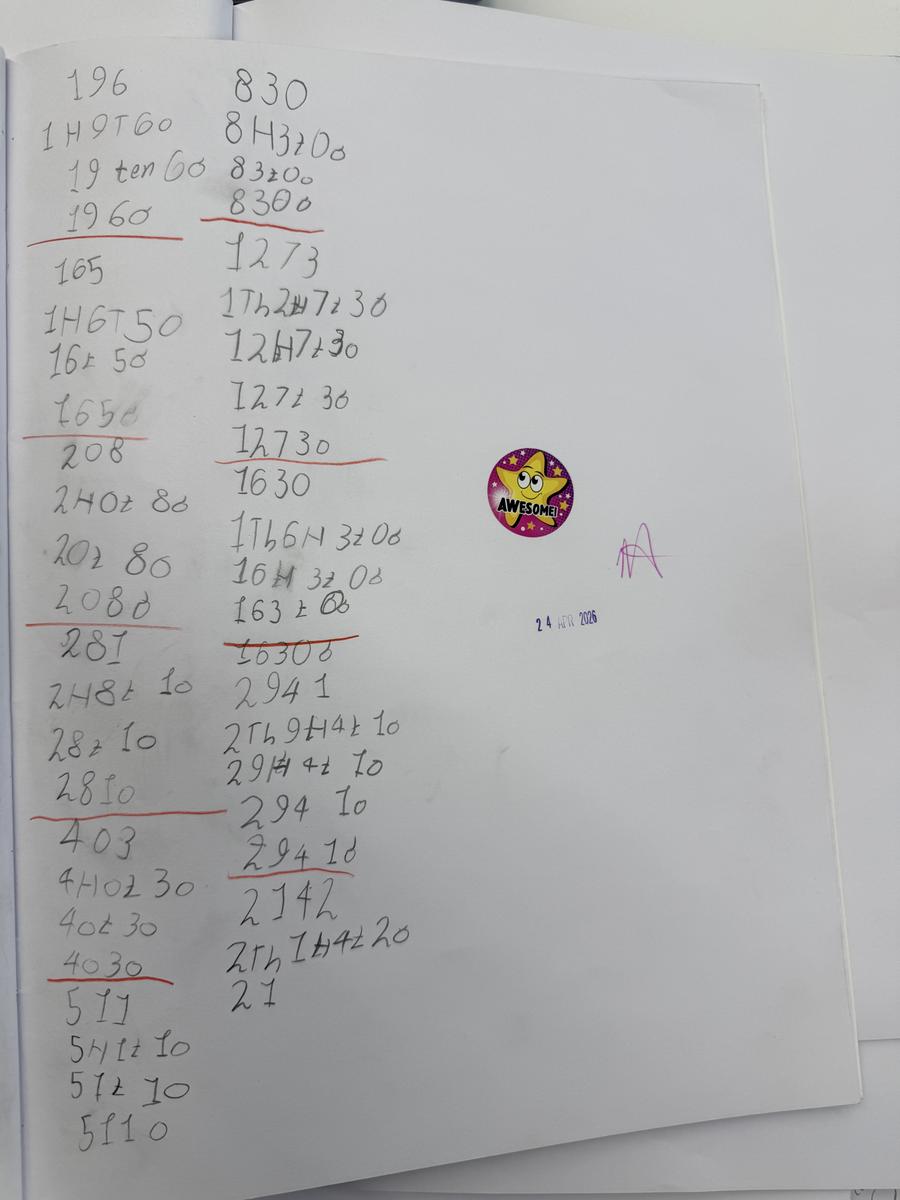 196
1H9T6o
19 ten 6o
196o
165
1H6T5o
16t 5o
165o
208
2H0t 8o
20t 8o
208o
281
2H8t 1o
28t 1o
281o
403
4H0t 3o
40t 3o
403o
511
5H1t 1o
51t 1o
511o
830
8H3t0o
83t0o
830o
1273
1Th2H7t3o
12H7t3o
127t 3o
1273o
1630
1Th6H 3t0o
16H 3t 0o
163t 0o
1630o
2941
2Th9H4t 1o
29H 4t 1o
294 1o
294 1o
2142
2Th1H4t2o
21
AWESOME!
24 APR 2026